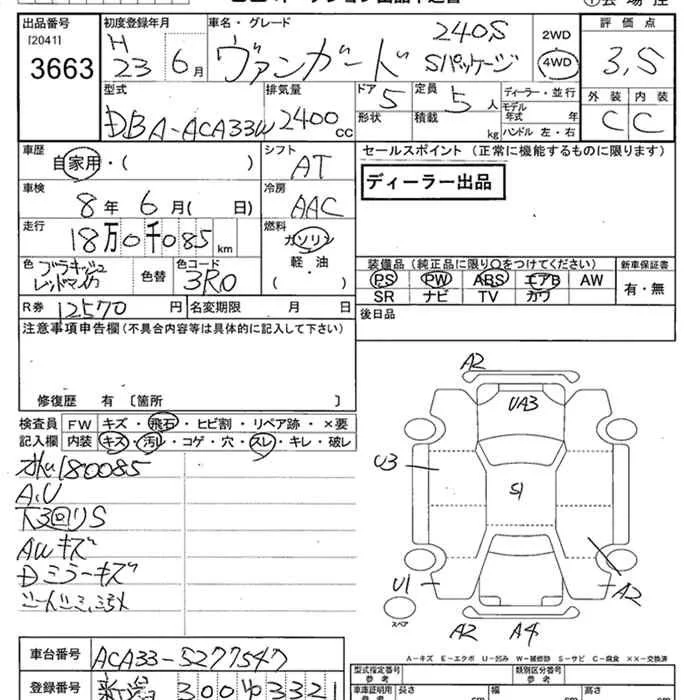 出品番号 初度登録年月 車名・グレード 評価点
[20411] H 23 6月 ヴァンガード 240S Sパッケージ 2WD 4WD 3.5
3663
型式 排気量 ドア 5 定員 5人 ディーラー・並行 外装 内装
DBA-ACA33W 2400cc 形状 積載 kg モデル年式 年 C C
ハンドル 左・右
車歴 自家用・( ) シフト AT セールスポイント (正常に機能するものに限ります)
車検 8年 6月( 日) 冷房 AAC ディーラー出品
走行 18万0千085km 燃料 ガソリン・軽油( )
色 ブラキッシュレッドマイカ 色替 色コード 3R0
装備品(純正品に限り○をつけてください) 新車保証書
PS PW ABS エアB AW 有・無
SR ナビ TV カワ
R券 12570円 名変期限 月 日 後日品
注意事項申告欄(不具合内容等は具体的に記入して下さい)
修復歴 有 〔箇所 〕
検査員 FW キズ・飛石・ヒビ割・リペア跡・×要
記入欄 内装 キズ・汚レ・コゲ・穴・スレ・キレ・破レ
180085
A,U
下3回りS
AWキズ
Dミラーキズ
A2
UA3
U3
S1
U1
A2
A2 A4
スペア
A-キズ E-エクボ U-凹み W-補修跡 S-サビ C-腐食 ××-交換済
車台番号 ACA33-5277547
型式指定番号 参考 類別区分番号 参考
登録番号 新潟 300 ゆ 3321
車庫証明用 参考 長さ cm 幅 cm 高さ cm